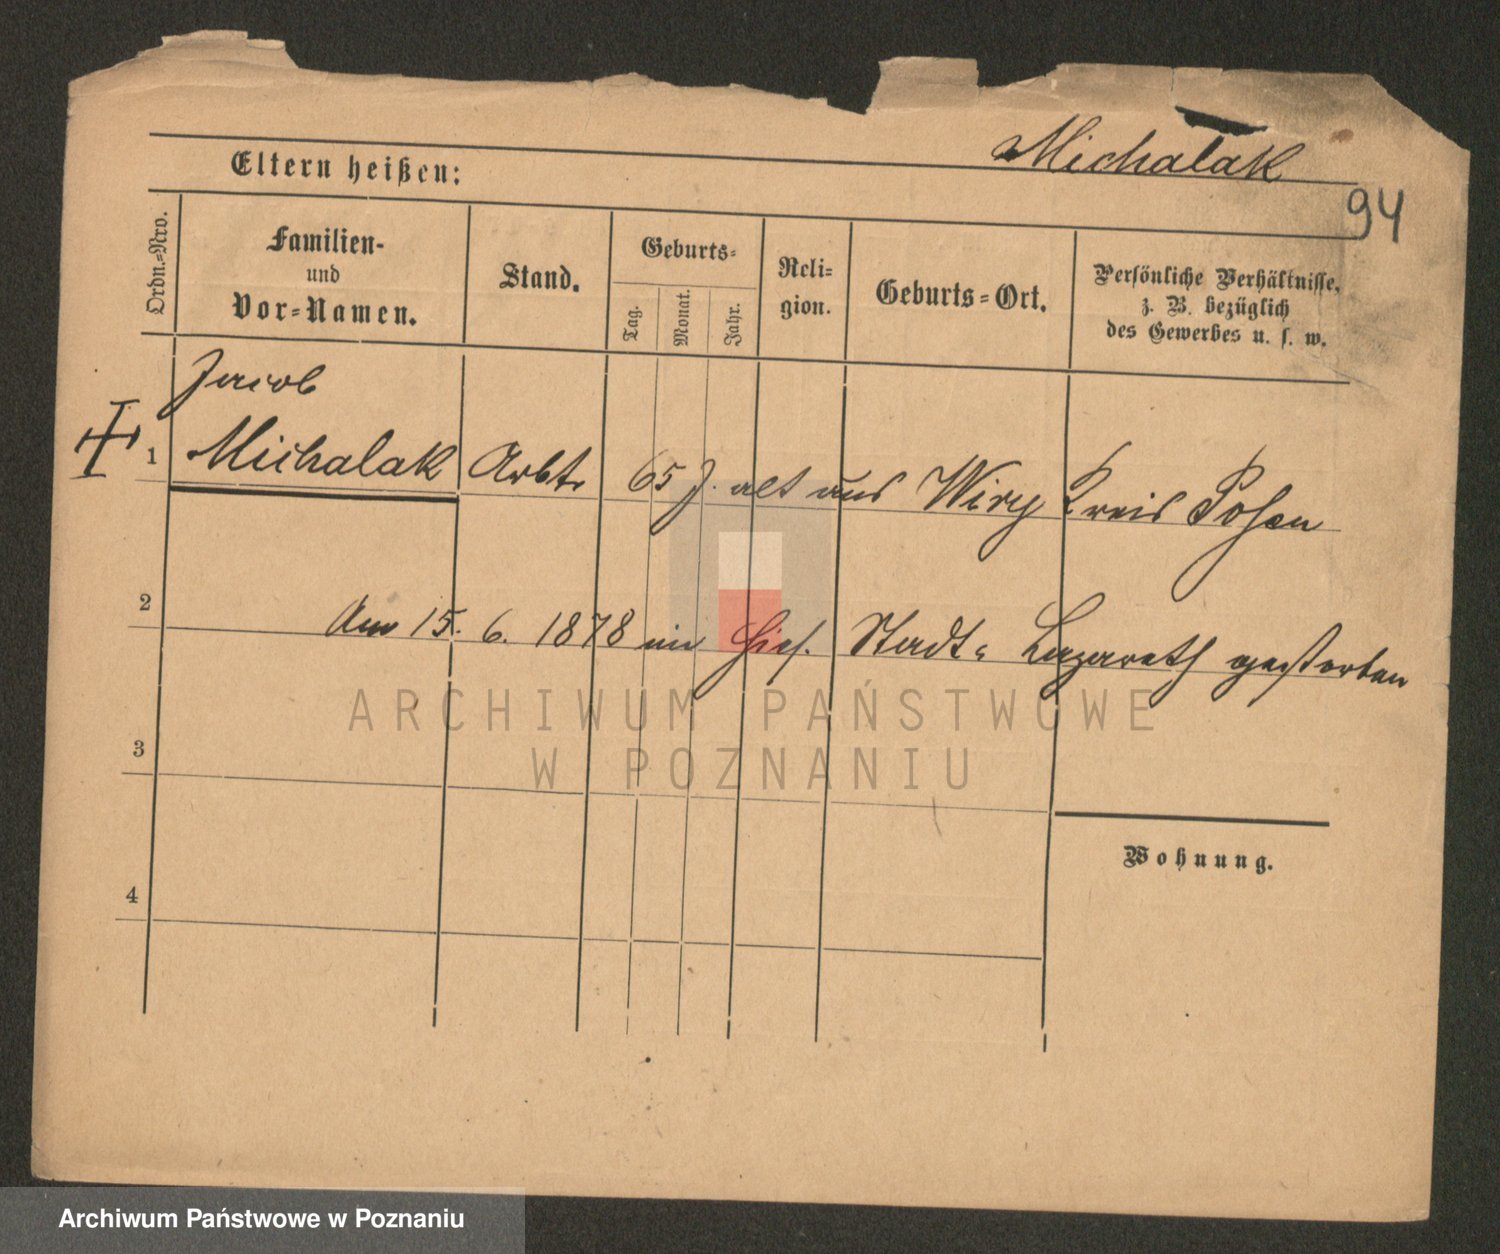 Michalak
Eltern heißen:
94
Ordn.=Nro.
Familien-
und
Vor=Namen.
Stand.
Geburts=
Tag.
Monat.
Jahr.
Reli=
gion.
Geburts=Ort.
Persönliche Verhältnisse,
z. B. bezüglich
des Gewerbes u. s. w.
Jacob
1 Michalak Arbtr 65 J. alt aus Wiry Kreis Posen
2
Am 15. 6. 1878 im hies. Stadt= Lazareth gestorben
ARCHIWUM PAŃSTWOWE
W POZNANIU
3
Wohnung.
4
Archiwum Państwowe w Poznaniu